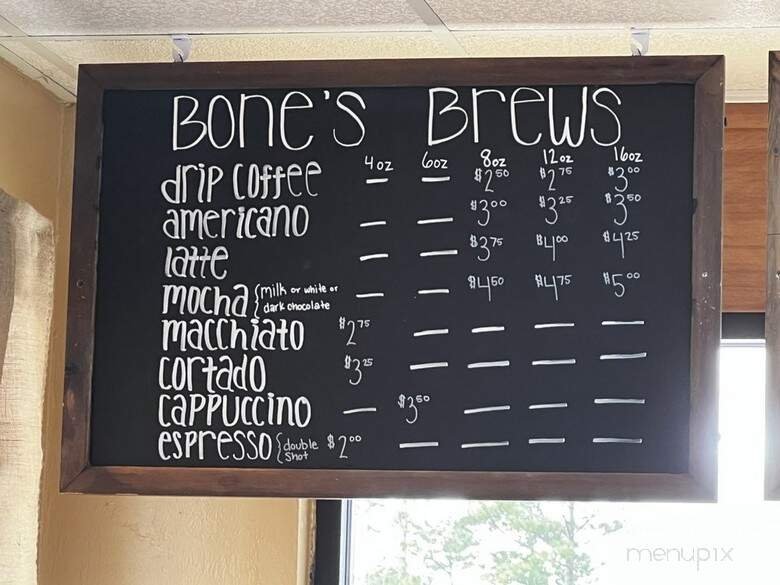 Bone's Brews
4oz 6oz 8oz 12oz 16oz
drip coffee — — $2.50 $2.75 $3.00
americano — — $3.00 $3.25 $3.50
latte — — $3.75 $4.00 $4.25
mocha {milk or white or dark chocolate — — $4.50 $4.75 $5.00
macchiato $2.75 — — — —
cortado $3.25 — — — —
cappuccino — $3.50 — — —
espresso {double shot $2.00 — — — —
menupix